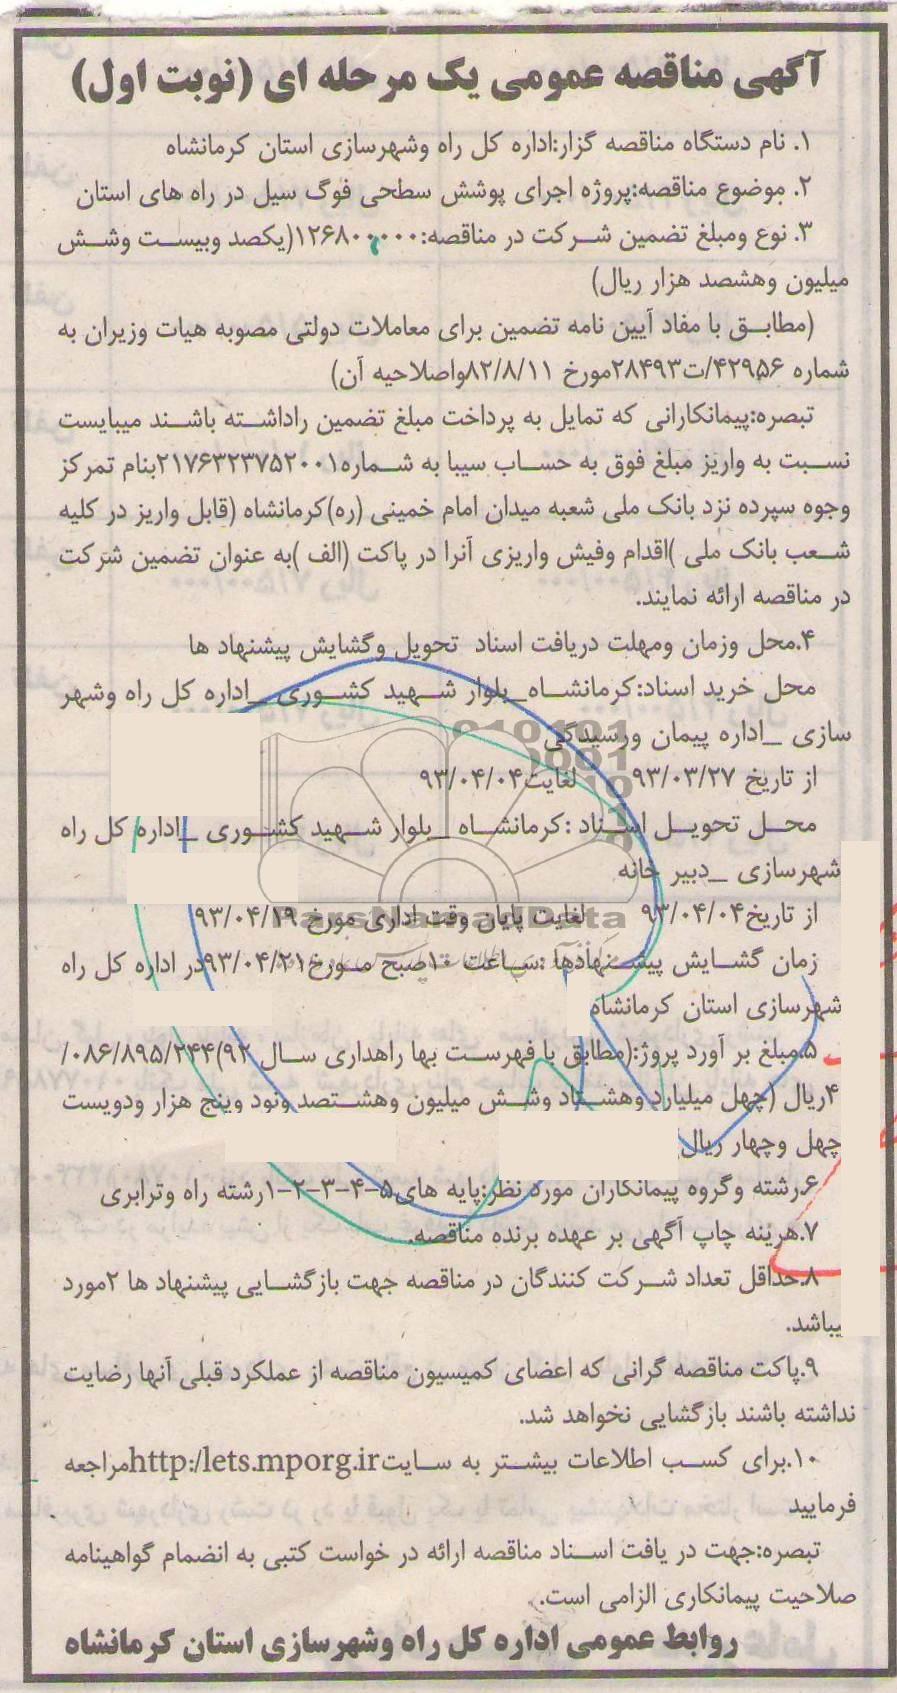 آگهی مناقصه عمومی یک مرحله ای (نوبت اول)
۱. نام دستگاه مناقصه گزار:اداره کل راه وشهرسازی استان کرمانشاه
۲. موضوع مناقصه:پروژه اجرای پوشش سطحی فوگ سیل در راه های استان
۳. نوع ومبلغ تضمین شرکت در مناقصه:۱۲۶۸۰۰۰۰۰(یکصد وبیست وشش
میلیون وهشصد هزار ریال)
(مطابق با مفاد آیین نامه تضمین برای معاملات دولتی مصوبه هیات وزیران به
شماره ۴۲۹۵۶/ت۲۸۴۹۳مورخ ۸۲/۸/۱۱واصلاحیه آن)
تبصره:پیمانکارانی که تمایل به پرداخت مبلغ تضمین راداشته باشند میبایست
نسبت به واریز مبلغ فوق به حساب سیبا به شماره۲۱۷۶۳۲۳۷۵۲۰۰۱بنام تمرکز
وجوه سپرده نزد بانک ملی شعبه میدان امام خمینی (ره)کرمانشاه (قابل واریز در کلیه
شعب بانک ملی )اقدام وفیش واریزی آنرا در پاکت (الف )به عنوان تضمین شرکت
در مناقصه ارائه نمایند.
۴.محل وزمان ومهلت دریافت اسناد تحویل وگشایش پیشنهاد ها
محل خرید اسناد:کرمانشاه_بلوار شهید کشوری _اداره کل راه وشهر
سازی _اداره پیمان ورسیدگی
از تاریخ ۹۳/۰۳/۲۷ لغایت۹۳/۰۴/۰۴
محل تحویل اسناد :کرمانشاه _بلوار شهید کشوری _اداره کل راه
شهرسازی _دبیر خانه
از تاریخ۹۳/۰۴/۰۴ لغایت پایان وقت اداری مورخ ۹۳/۰۴/۱۹
ParsNamadData
زمان گشایش پیشنهادها :ساعت ۱۰صبح مورخ۹۳/۰۴/۲۱در اداره کل راه
شهرسازی استان کرمانشاه
۵.مبلغ بر آورد پروژ:(مطابق با فهرست بها راهداری سال ۹۲)۰۸۶/۸۹۵/۲۴۴/
۴ریال (چهل میلیارد وهشتاد وشش میلیون وهشتصد ونود وپنج هزار ودویست
چهل وچهار ریال
۶.رشته وگروه پیمانکاران مورد نظر:پایه های۵-۴-۳-۲-۱رشته راه وترابری
۷.هزینه چاپ آگهی بر عهده برنده مناقصه.
۸.حداقل تعداد شرکت کنندگان در مناقصه جهت بازگشایی پیشنهاد ها ۲مورد
یباشد.
۹.پاکت مناقصه گرانی که اعضای کمیسیون مناقصه از عملکرد قبلی آنها رضایت
نداشته باشند بازگشایی نخواهد شد.
۱۰.برای کسب اطلاعات بیشتر به سایتhttp:/lets.mporg.irمراجعه
فرمایید
تبصره:جهت در یافت اسناد مناقصه ارائه در خواست کتبی به انضمام گواهینامه
صلاحیت پیمانکاری الزامی است.
روابط عمومی اداره کل راه وشهرسازی استان کرمانشاه